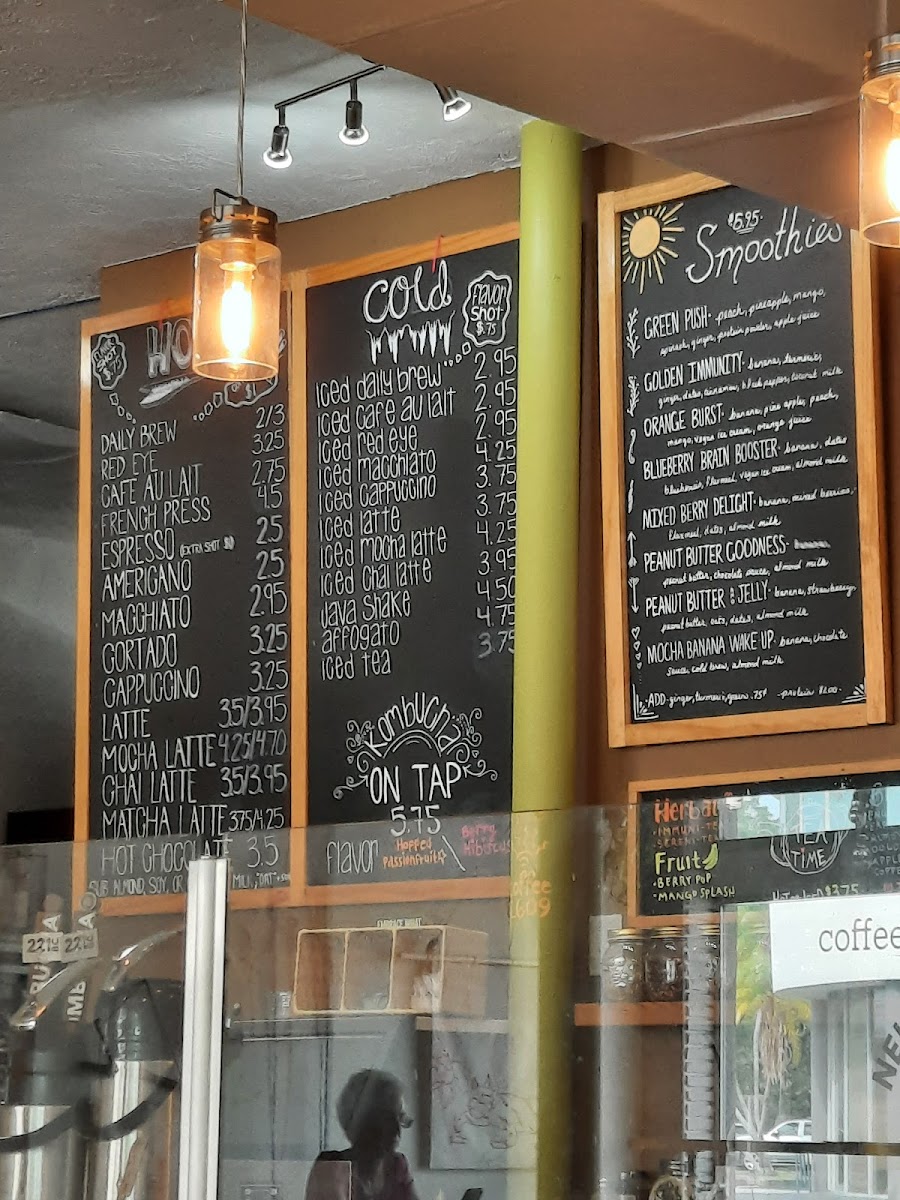 FLAVOR
SHOT
$.75
HO
DAILY BREW 2/3
RED EYE 3.25
CAFE AU LAIT 2.75
FRENCH PRESS 4.5
ESPRESSO (EXTRA SHOT $1) 2.5
AMERICANO 2.5
MACCHIATO 2.95
CORTADO 3.25
CAPPUCCINO 3.25
LATTE 3.5/3.95
MOCHA LATTE 4.25/4.70
CHAI LATTE 3.5/3.95
MATCHA LATTE 3.75/4.25
HOT CHOCOLATE 3.5
SUB ALMOND, SOY, OR MILK, "OAT"
cold
Flavor
Shot
$.75
Iced daily brew 2.95
Iced cafe au lait 2.95
Iced red eye 2.95
Iced macchiato 4.25
Iced cappuccino 3.75
Iced latte 3.75
Iced mocha latte 4.25
Iced chai latte 3.95
Java shake 4.50
affogato 4.75
Iced tea 3.75
Kombucha
ON TAP
5.75
flavor Hopped Passionfruit
Berry Hibiscus
$5.95
Smoothies
GREEN PUSH- peach, pineapple, mango,
spinach, ginger, protein powder, apple juice
GOLDEN IMMUNITY- bananas, turmeric,
ginger, dates, cinnamon, black pepper, coconut milk
ORANGE BURST- banana, pineapple, peach,
mango, vegan ice cream, orange juice
BLUEBERRY BRAIN BOOSTER- banana, dates
blueberries, flaxmeal, vegan ice cream, almond milk
MIXED BERRY DELIGHT- banana, mixed berries,
flaxmeal, dates, almond milk
PEANUT BUTTER GOODNESS-
peanut butter, chocolate sauce, almond milk
PEANUT BUTTER & JELLY- banana, strawberry,
peanut butter, oats, dates, almond milk
MOCHA BANANA WAKE UP- banana, chocolate
sauce, cold brew, almond milk
ADD- ginger, turmeric, greens .75¢ -protein $1.00-
Herbal
·IMMUNI-TEA
·SERENI-TEA
Fruit
·BERRY POP
·MANGO SPLASH
TEA
TIME
$3.75
coffee